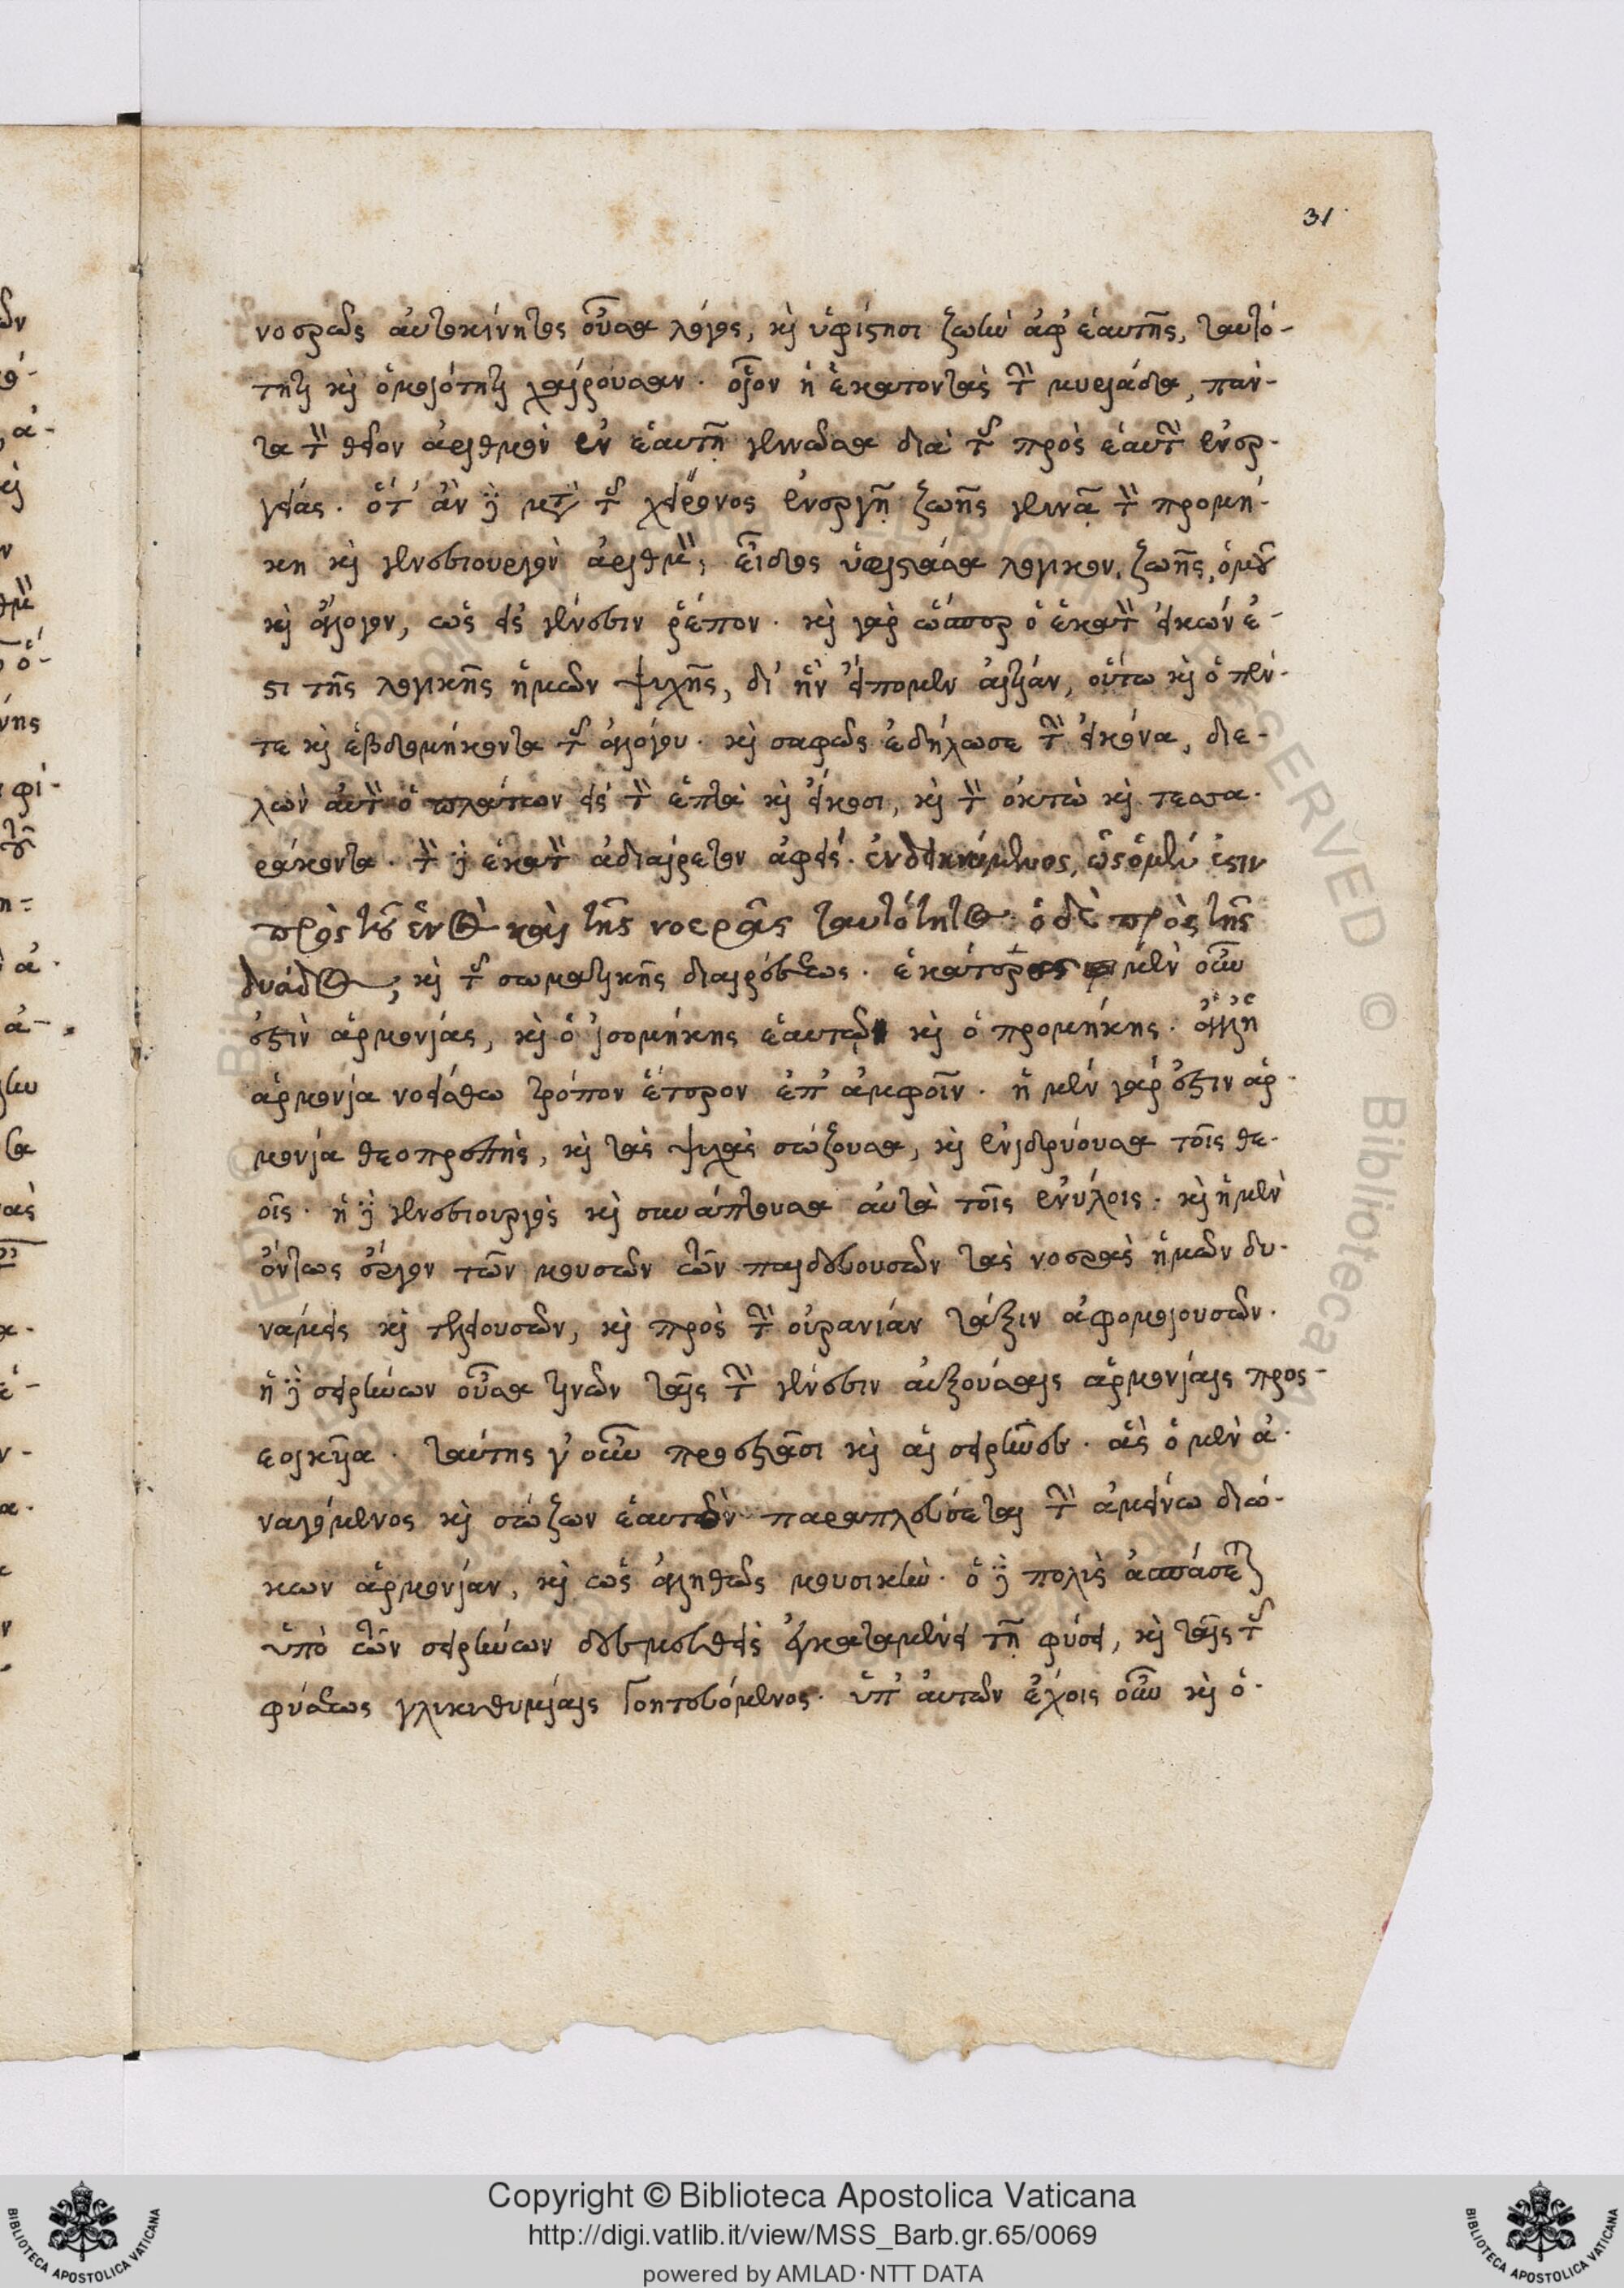 31
νοερῶς αὐτοκίνητος οὖσα λόγος, καὶ ὑφίστησι ζωὴν ἀφ' ἑαυτῆς, ταυτό-
τητι καὶ ὁμοιότητι χαίρουσαν. οἷον ἡ ἑκατοντὰς τὴν μυριάδα, πάν-
τα τὸν θεῖον ἀριθμὸν ἐν ἑαυτῇ γεννῶσα διὰ τῆς πρὸς ἑαυτὴν ἐνερ-
γείας. ὅτ' ἂν δὲ μετὰ τοῦ χείρονος ἐνεργῇ ζωῆς γεννᾷ τὸν προμή-
κη καὶ γενεσιουργὸν ἀριθμὸν, εἶδος ὑφιστᾶσα λογικὸν, ζωῆς, ὁμοῦ
καὶ ἄλογον, ὡς εἰς γένεσιν ῥέπον. καὶ γὰρ ὥσπερ ὁ ἑκατὸν εἰκών ἐ-
στι τῆς λογικῆς ἡμῶν ψυχῆς, δι' ἣν εἴπομεν αἰτίαν, οὕτω καὶ ὁ πέν-
τε καὶ ἑβδομήκοντα τῆς ἀλόγου. καὶ σαφῶς ἐδήλωσε τὴν εἰκόνα, διε-
λὼν αὐτὸν ὁ πλάτων εἰς τὸν ἑπτὰ καὶ εἴκοσι, καὶ τὸν ὀκτὼ καὶ τεσσα-
ράκοντα. τὸν δὲ ἑκατὸν ἀδιαίρετον ἀφείς. ἐνδεικνύμενος, ὡς ὁ μέν ἐστιν
πρὸς τοῦ ἑνὸς καὶ τῆς νοερᾶς ταυτότητος. ὁ δὲ πρὸς τῆς
δυάδος, καὶ τῆς σωματικῆς διαιρέσεως. ἑκάτερος μὲν οὖν
ἐστὶν ἁρμονίας, καὶ ὁ ἰσομήκης ἑαυτῷ καὶ ὁ προμήκης. ἀλλ' ἡ
ἁρμονία νοείσθω τρόπον ἕτερον ἐπ' ἀμφοῖν. ἡ μὲν γάρ ἐστιν ἁρ-
μονία θεοπρεπὴς, καὶ τὰς ψυχὰς σώζουσα, καὶ ἐνιδρύουσα τοῖς θε-
οῖς. ἡ δὲ γενεσιουργὸς καὶ συνάπτουσα αὐτὰ τοῖς ἐνύλοις. καὶ ἡ μὲν
ὄντως ἔργον τῶν μουσῶν τῶν παιδευουσῶν τὰς νοερὰς ἡμῶν δυ-
νάμεις καὶ τελειουσῶν, καὶ πρὸς τὴν οὐρανίαν τάξιν ἀφομοιουσῶν.
ἡ δὲ σειρήνων οὖσα τινῶν ταῖς τὴν γένεσιν αὐξούσαις ἁρμονίαις προσ-
εοικυῖα. ταύτης γ' οὖν προστᾶσι καὶ αἱ σειρῆνες. ἃς ὁ μὲν ἀ-
ναγόμενος καὶ σώζων ἑαυτὸν παραπλεύσεται τὴν ἀμείνω διώ-
κων ἁρμονίαν, καὶ ὡς ἀληθῶς μουσικήν. ὁ δὲ πολὺς ἀσπάσεται
ὑπὸ τῶν σειρήνων δεσμευθεὶς ἐγκαταμένει τῇ φύσει, καὶ ταῖς τῆς
φύσεως γλυκυθυμίαις γοητευόμενος. ὑπ' αὐτῶν ἔχοις οὖν καὶ ὁ-